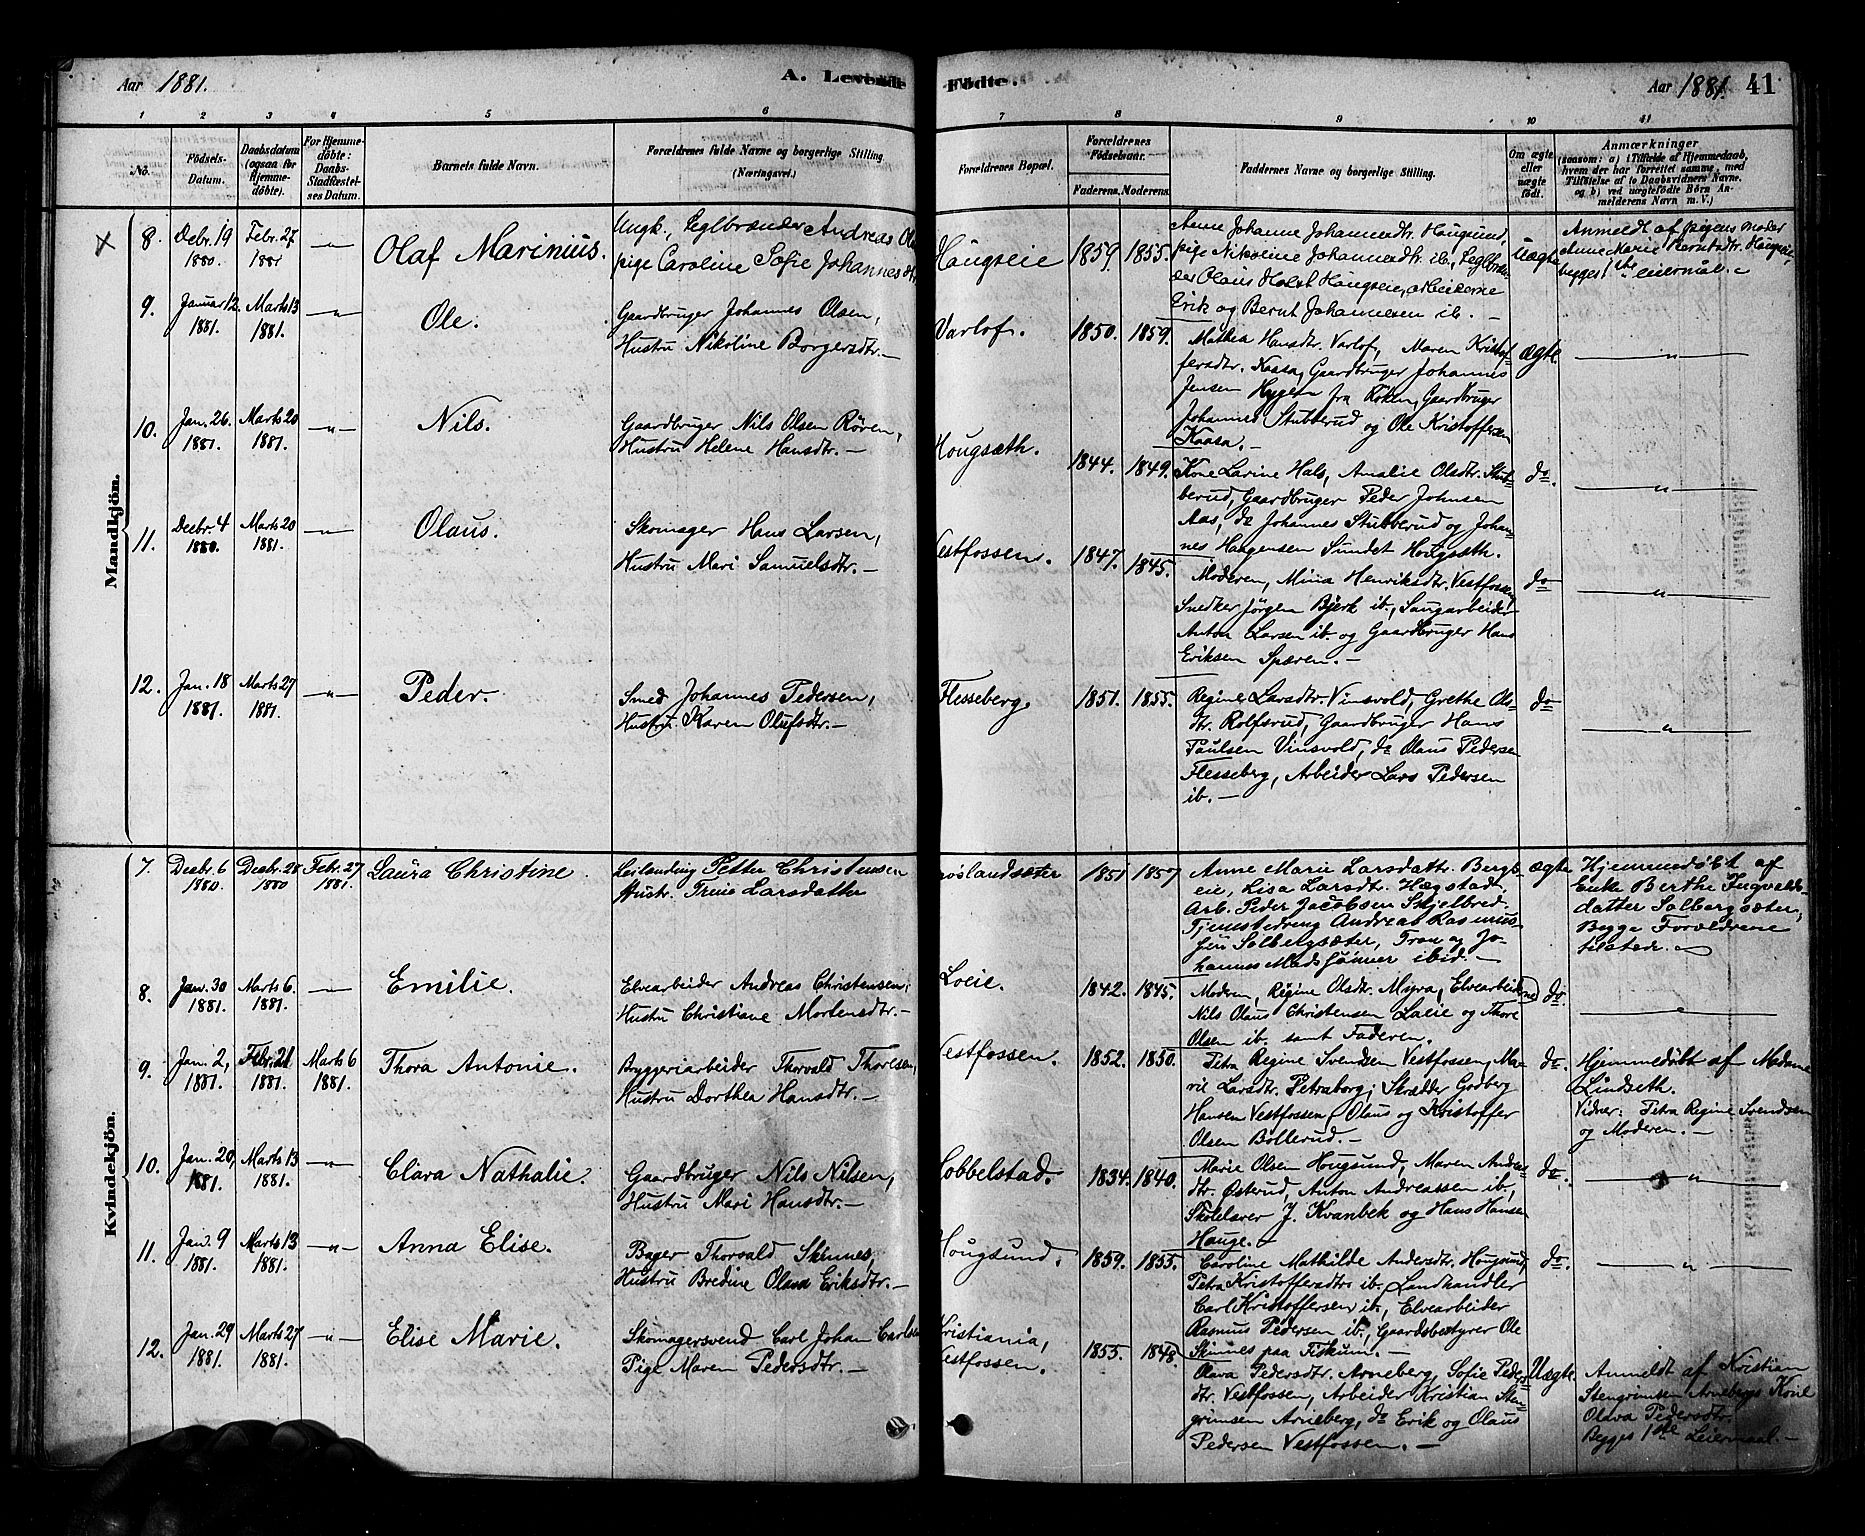 Aar 1881.
A. Levende
Fødte.
Aar 1881. 41
1 2 3 4 5 6 7 8 9 10 11
No.
Fødsels-Datum.
Daabsdatum (ogsaa for Hjemmedöbte).
For Hjemmedöbte: Daabs-Stadfæstelses Datum.
Barnets fulde Navn.
Forældrenes fulde Navne og borgerlige Stilling (Næringsvei.)
Forældrenes Bopæl.
Forældrenes Födselsaar.
Faderens. Moderens.
Faddernes Navne og borgerlige Stilling.
Om ægte eller uægte födt.
Anmærkninger
(saasom: a) i Tilfælde af Hjemmedaab, hvem der har forrettet samme, med Tilföielse af to Daabsvidners Navne, og b) ved uægtefödte Börn Anmelderens Navn m. V.)
Mandkjön.
8. Decbr. 19 1880. Febr. 27 1881 — " —
Olaf Marinius.
Ungk., Teglbrænder Andreas
pige Caroline Sofie Johannesdtr.
Hougseie 1859. 1855.
Anne Johanne Johannesdtr. Hougsund,
pige Nikoline Johannesdtr. ib., Teglbræn-
der Olaus Holst Hougseie, arbeiderne
Erik og Bernt Johannesen ib. —
Uægte
Anmeldt af pigens moder
Anne Marie Berntsdtr. Hougseie,
begges 1ste leiermål. —
9. Januar 12. 1881. Marts 13 1881. — " —
Ole.
Gaardbruger Johannes Olsen,
Hustru Nikoline Borgersdtr. —
Varlof. 1850. 1859.
Mathea Hansdtr. Varlof, Maren Kristof-
fersdtr. Kaasa, Gaardbruger Johannes
Jensen Hygen fra Röken, Gaardbruger
Johannes Stubberud og Ole Kristoffersen
Kaasa. —
ægte. — " —
10. Jan. 26. 1881. Marts 20 1881. — " —
Nils.
Gaardbruger Nils Olsen Rören,
Hustru Helene Hansdtr. —
Hougsæth. 1844. 1849.
Kone Larine Hals, Amalie Olsdtr. Stub-
berud, Gaardbruger Peder Johnsen
Aas, do Johannes Stubberud og Johan-
nes Haagensen Sundet Hougsæth.
do. — " —
11. Decbr. 4 1880. Marts 20 1881. — " —
Olaus.
Skomager Hans Larsen,
Hustru Mari Samuelsdtr. —
Vestfossen. 1847. 1845.
Moderen, Mina Henriksdtr. Vestfossen,
Snedker Jörgen Bjerk ib., Saugarbeider
Anton Larsen ib. og Gaardbruger Hans
Eriksen Spæren. —
do — " —
12. Jan. 18 1881. Marts 27 1881. — " —
Peder.
Smed Johannes Pedersen,
Hustru Karen Olufsdtr. —
Flesseberg. 1851. 1855.
Regine Larsdtr. Vinsvold, Grethe Ols-
dtr. Rolfsrud, Gaardbruger Hans
Paulsen Vinsvold, do Olaus Pedersen
Flesseberg, Arbeider Lars Pedersen
ib. —
do — " —
Kvindekjön.
7. Decbr. 6 1880. Decbr. 28 1880 Febr. 27 1881.
Laura Christine.
Leilending Petter Christensen
Hustr. Truis Larsdatter
1851 1857
Anne Marie Larsdattr. Bergs-
eie, Lisa Larsdtr. Hægstad.
Arb. Peder Jacobsen Skjelbred.
Tjenestedreng Andreas Rasmus-
sen Solbergsæter, Tron og Jo-
hannes Madssönner ibid. —
ægte
Hjemmedöbt af
Enke Berthe Ingvalds-
datter Solbergsæter,
Begge Forældrene
tilstede.
8. Jan. 30 1881. Marts 6. 1881. —
Emilie.
Elvearbeider Andreas Christensen,
Hustru Christiane Mortensdtr. —
Loeie. 1842. 1845.
Modren, Regine Olsdtr. Myra, Elvearbeiderne
Nils Olaus Christensen Loeie og Thore
Olsen ib. samt Faderen.
do. — " —
9. Jan. 2, 1881. Febr. 21 1881. Marts 6 1881.
Thora Antonie.
Bryggeriarbeider Thorvald Thorsen,
Hustru Dorthea Hansdtr. —
Vestfossen. 1852. 1850.
Petra Regine Svendsen Vestfossen, Ma-
rie Larsdtr. Petraborg, Skrædder Godberg
Hansen Vestfossen, Olaus og Kristoffer
Olsen Bollerud. —
do.
Hjemmedöbt af Madame
Lindseth.
Vidner: Petra Regine Svendsen
og Moderen. —
10. Jan. 20, 1881. Marts 13 1881. — " —
Clara Nathalie.
Gaardbruger Nils Nilsen,
Hustru Mari Hansdtr. —
Hobbelstad. 1834. 1840.
Marie Olsen Hougsund, Maren Andreas-
dtr. Östrud, Anton Andreassen ib.,
Skolelærer J. Kvanbek og Hans Hansen
Hauge. —
do. — " —
11. Jan. 9 1881. Marts 13 1881. — " —
Anna Elise.
Bager Thorvald Skinnes,
Hustru Bredine Olava Eriksdtr. —
Hougsund. 1859. 1855.
Caroline Mathilde Andersdtr. Hougsund,
Petra Kristoffersdtr. ib. Landhandler
Carl Kristoffersen ib., Elvearbeider
Rasmus Pedersen ib., Gaardsbestyrer Ole
Skinnes paa Fiskum. —
do. — " —
12. Jan. 29 1881. Marts 27 1881. — " —
Elise Marie.
Skomagersvend Carl Johan Carlsen
Pige Maren Pedersdtr. —
Kristiania,
Vestfossen. 1855. 1848.
Olava Pedersdtr. Arneberg, Sofie Peders-
dtr. Vestfossen, Arbeider Kristian Sten-
grimsen Arneberg, do Erik og Olaus
Pedersen Vestfossen. —
Uægte.
Anmeldt af Kristian
Stengrimsen Arnebergs Kone
Olava Pedersdtr.
Begges 1ste Leiermaal. —